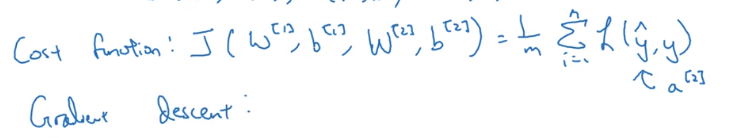 Cost function: J(W^[1], b^[1], W^[2], b^[2]) = 1/m Σ_{i=1}^{n} L(ŷ, y)
↑ a^[2]
Gradient descent: